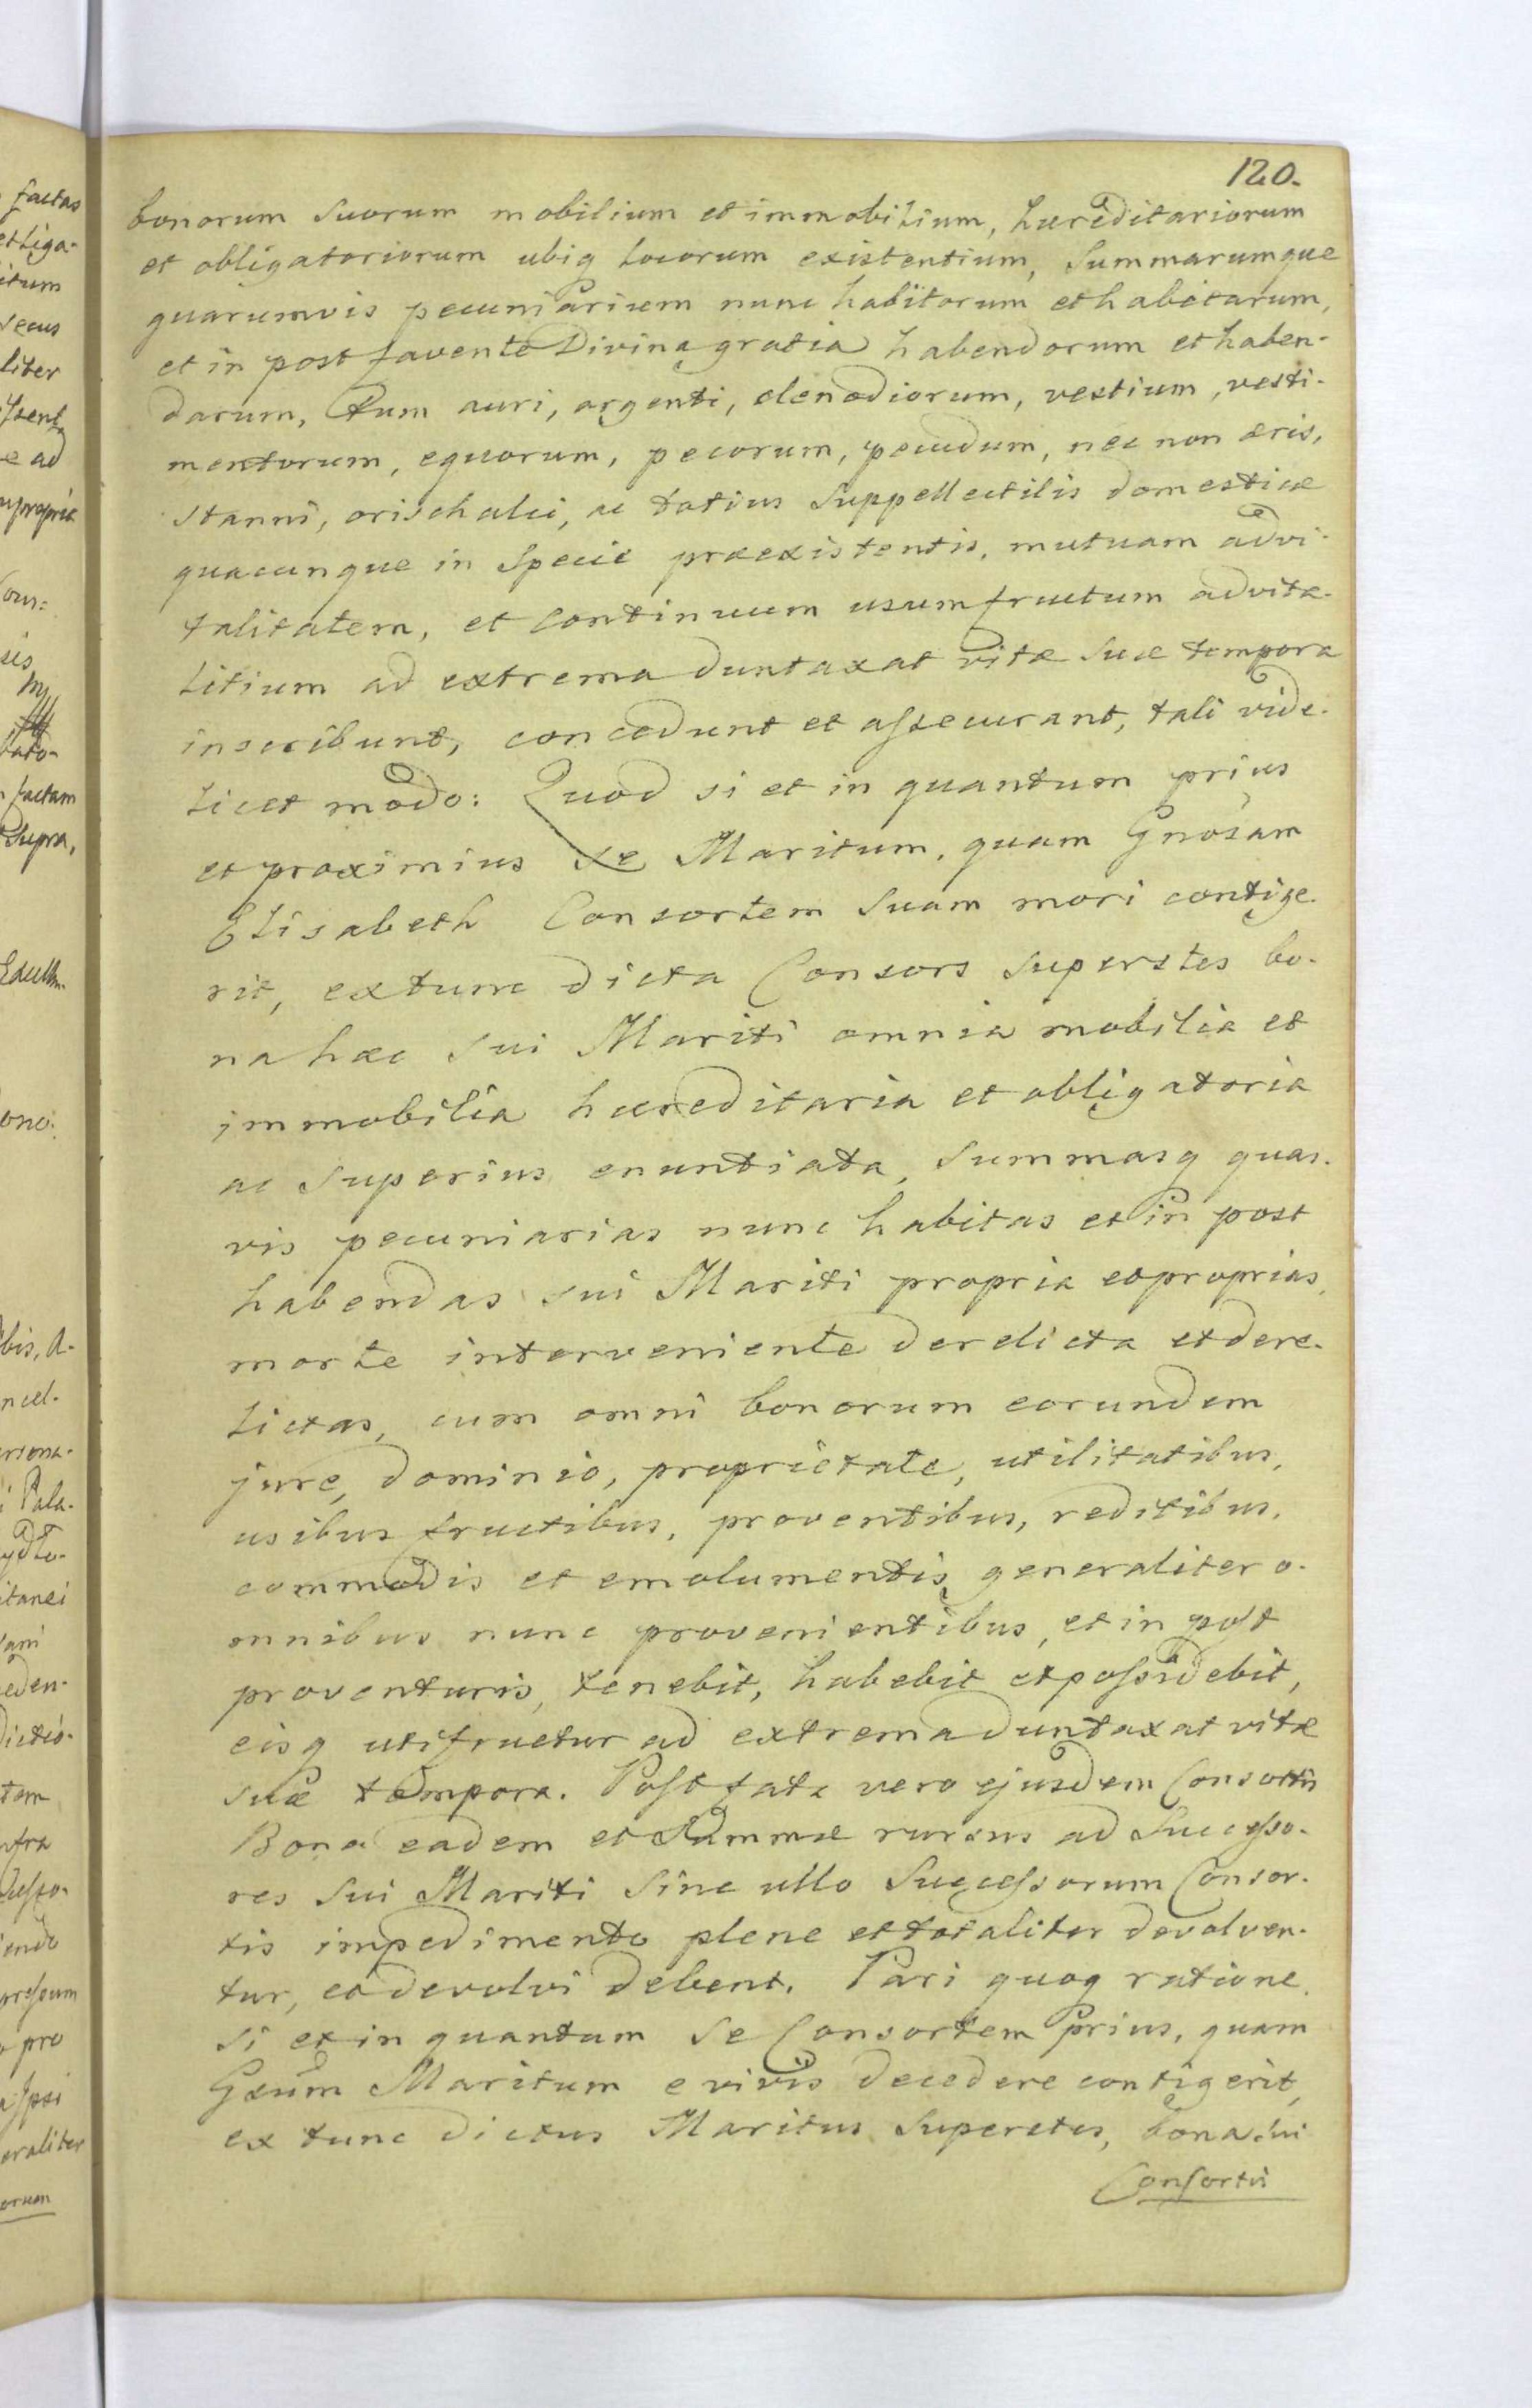 120.
bonorum suorum mobilium et immobilium, hæreditariorum
et obligatoriorum ubiq locorum existentium, summarumque
quarumvis pecuniarium nunc habitorum et habitarum,
et in post favente Divina gratia habendorum et haben-
darum, tum auri, argenti, clenodiorum, vestium, vesti-
mentorum, equorum, pecorum, pecudum, nec non æris,
stanni, orischalci, ac totius suppellectilis domesticæ
quacunque in specie præexistentis, mutuam advi-
talitatem, et continuum usumfructum advita-
litium ad extrema duntaxat vitæ suæ tempora
inscribunt, concedunt et assecurant, tali vide-
licet modo: Quod si et in quantum prius
et proximius se Maritum, quam Gnosam
Elisabeth Consortem suam mori contige-
rit, extunc dicta Consors superstes bo-
na hæc sui Mariti omnia mobilia et
immobilia hæreditaria et obligatoria
ac superius enuntiata, summasq quas-
vis pecuniarias nunc habitas et in post
habendas sui Mariti propria et proprias,
morte interveniente derelicta et dere-
lictas, cum omni bonorum eorundem
jure, dominio, proprietate, utilitatibus,
usibus fructibus, proventibus, reditibus,
commodis et emolumentis generaliter o-
mnibus nunc provenientibus, et in post
proventuris, tenebit, habebit et possidebit,
eisq utifruetur ad extrema duntaxat vitæ
suæ tempora. Post fata vero ejusdem Consortis
Bona eadem et Summæ rursus ad Successo-
res sui Mariti sine ullo Successorum Consor-
tis impedimento plene et totaliter devolven-
tur, et devolvi debent. Pari quoq ratione,
si et in quantum se Consortem prius, quam
Gsum Maritum e vivis decedere contigerit,
ex tunc dictus Maritus superstes, bona sui
Consortis